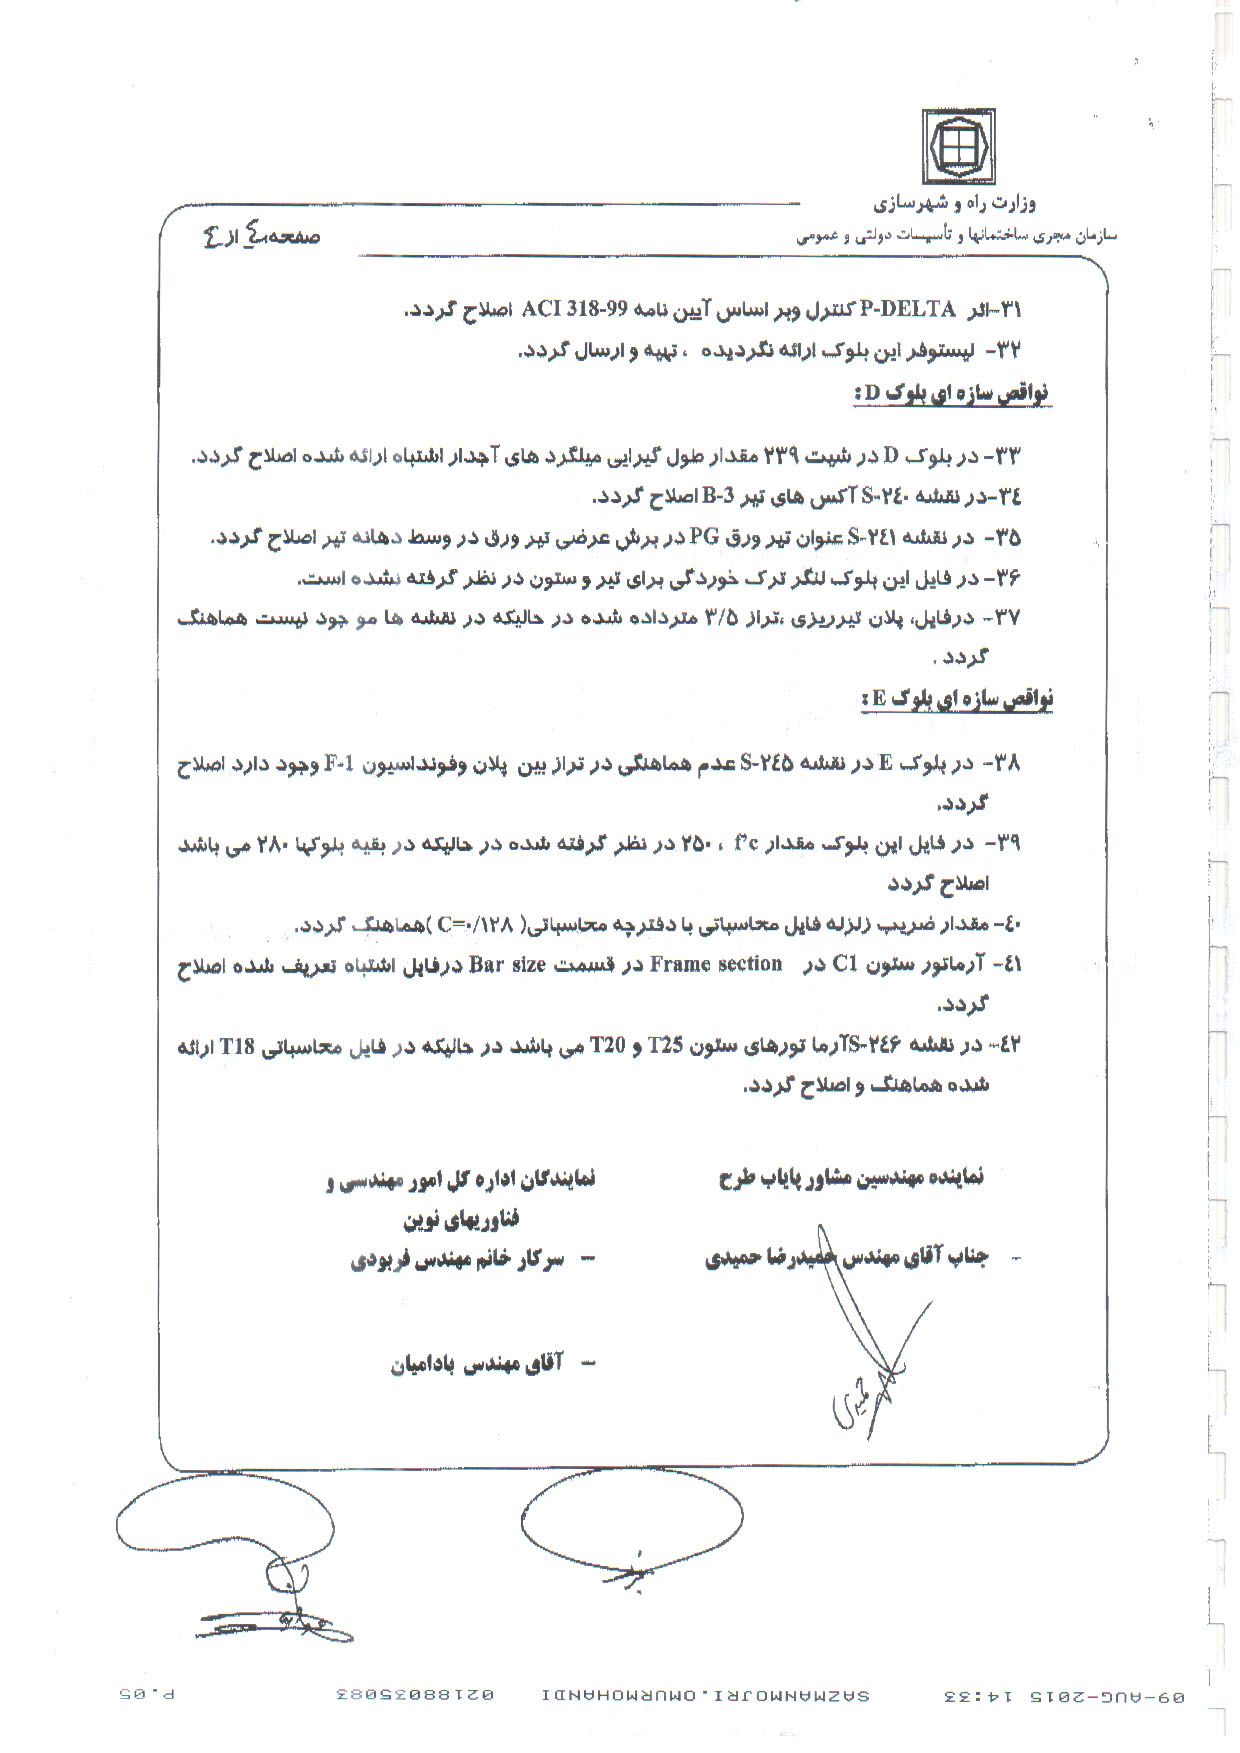 وزارت راه و شهرسازی
سازمان مجری ساختمانها و تأسیسات دولتی و عمومی
صفحه ٤ از ٤
۳۱-اثر P-DELTA کنترل وبر اساس آیین نامه ACI 318-99 اصلاح گردد.
۳۲- لیستوفر این بلوک ارائه نگردیده ، تهیه و ارسال گردد.
نواقص سازه ای بلوک D :
۳۳- در بلوک D در شیت ۲۳۹ مقدار طول گیرایی میلگرد های آجدار اشتباه ارائه شده اصلاح گردد.
۳٤-در نقشه S-۲٤۰ آکس های تیر B-3 اصلاح گردد.
۳۵- در نقشه S-۲٤۱ عنوان تیر ورق PG در برش عرضی تیر ورق در وسط دهانه تیر اصلاح گردد.
۳۶- در فایل این بلوک لنگر ترک خوردگی برای تیر و ستون در نظر گرفته نشده است.
۳۷- درفایل، پلان تیرریزی ،تراز ۳/۵ مترداده شده در حالیکه در نقشه ها مو جود نیست هماهنگ
گردد .
نواقص سازه ای بلوک E :
۳۸- در بلوک E در نقشه S-۲٤۵ عدم هماهنگی در تراز بین پلان وفونداسیون F-1 وجود دارد اصلاح
گردد.
۳۹- در فایل این بلوک مقدار f'c ، ۲۵۰ در نظر گرفته شده در حالیکه در بقیه بلوکها ۲۸۰ می باشد
اصلاح گردد
٤۰- مقدار ضریب زلزله فایل محاسباتی با دفترچه محاسباتی( C=۰/۱۲۸ )هماهنگ گردد.
٤۱- آرماتور ستون C1 در Frame section در قسمت Bar size درفایل اشتباه تعریف شده اصلاح
گردد.
٤۲- در نقشه S-۲٤۶آرما تورهای ستون T25 و T20 می باشد در حالیکه در فایل محاسباتی T18 ارائه
شده هماهنگ و اصلاح گردد.
نماینده مهندسین مشاور پایاب طرح
- جناب آقای مهندس حمیدرضا حمیدی
نمایندگان اداره کل امور مهندسی و
فناوریهای نوین
- سرکار خانم مهندس فربودی
- آقای مهندس بادامیان
09-AUG-2015 14:33 SAZMANMOJRI.OMURMOHANDI 02188035083 P.05